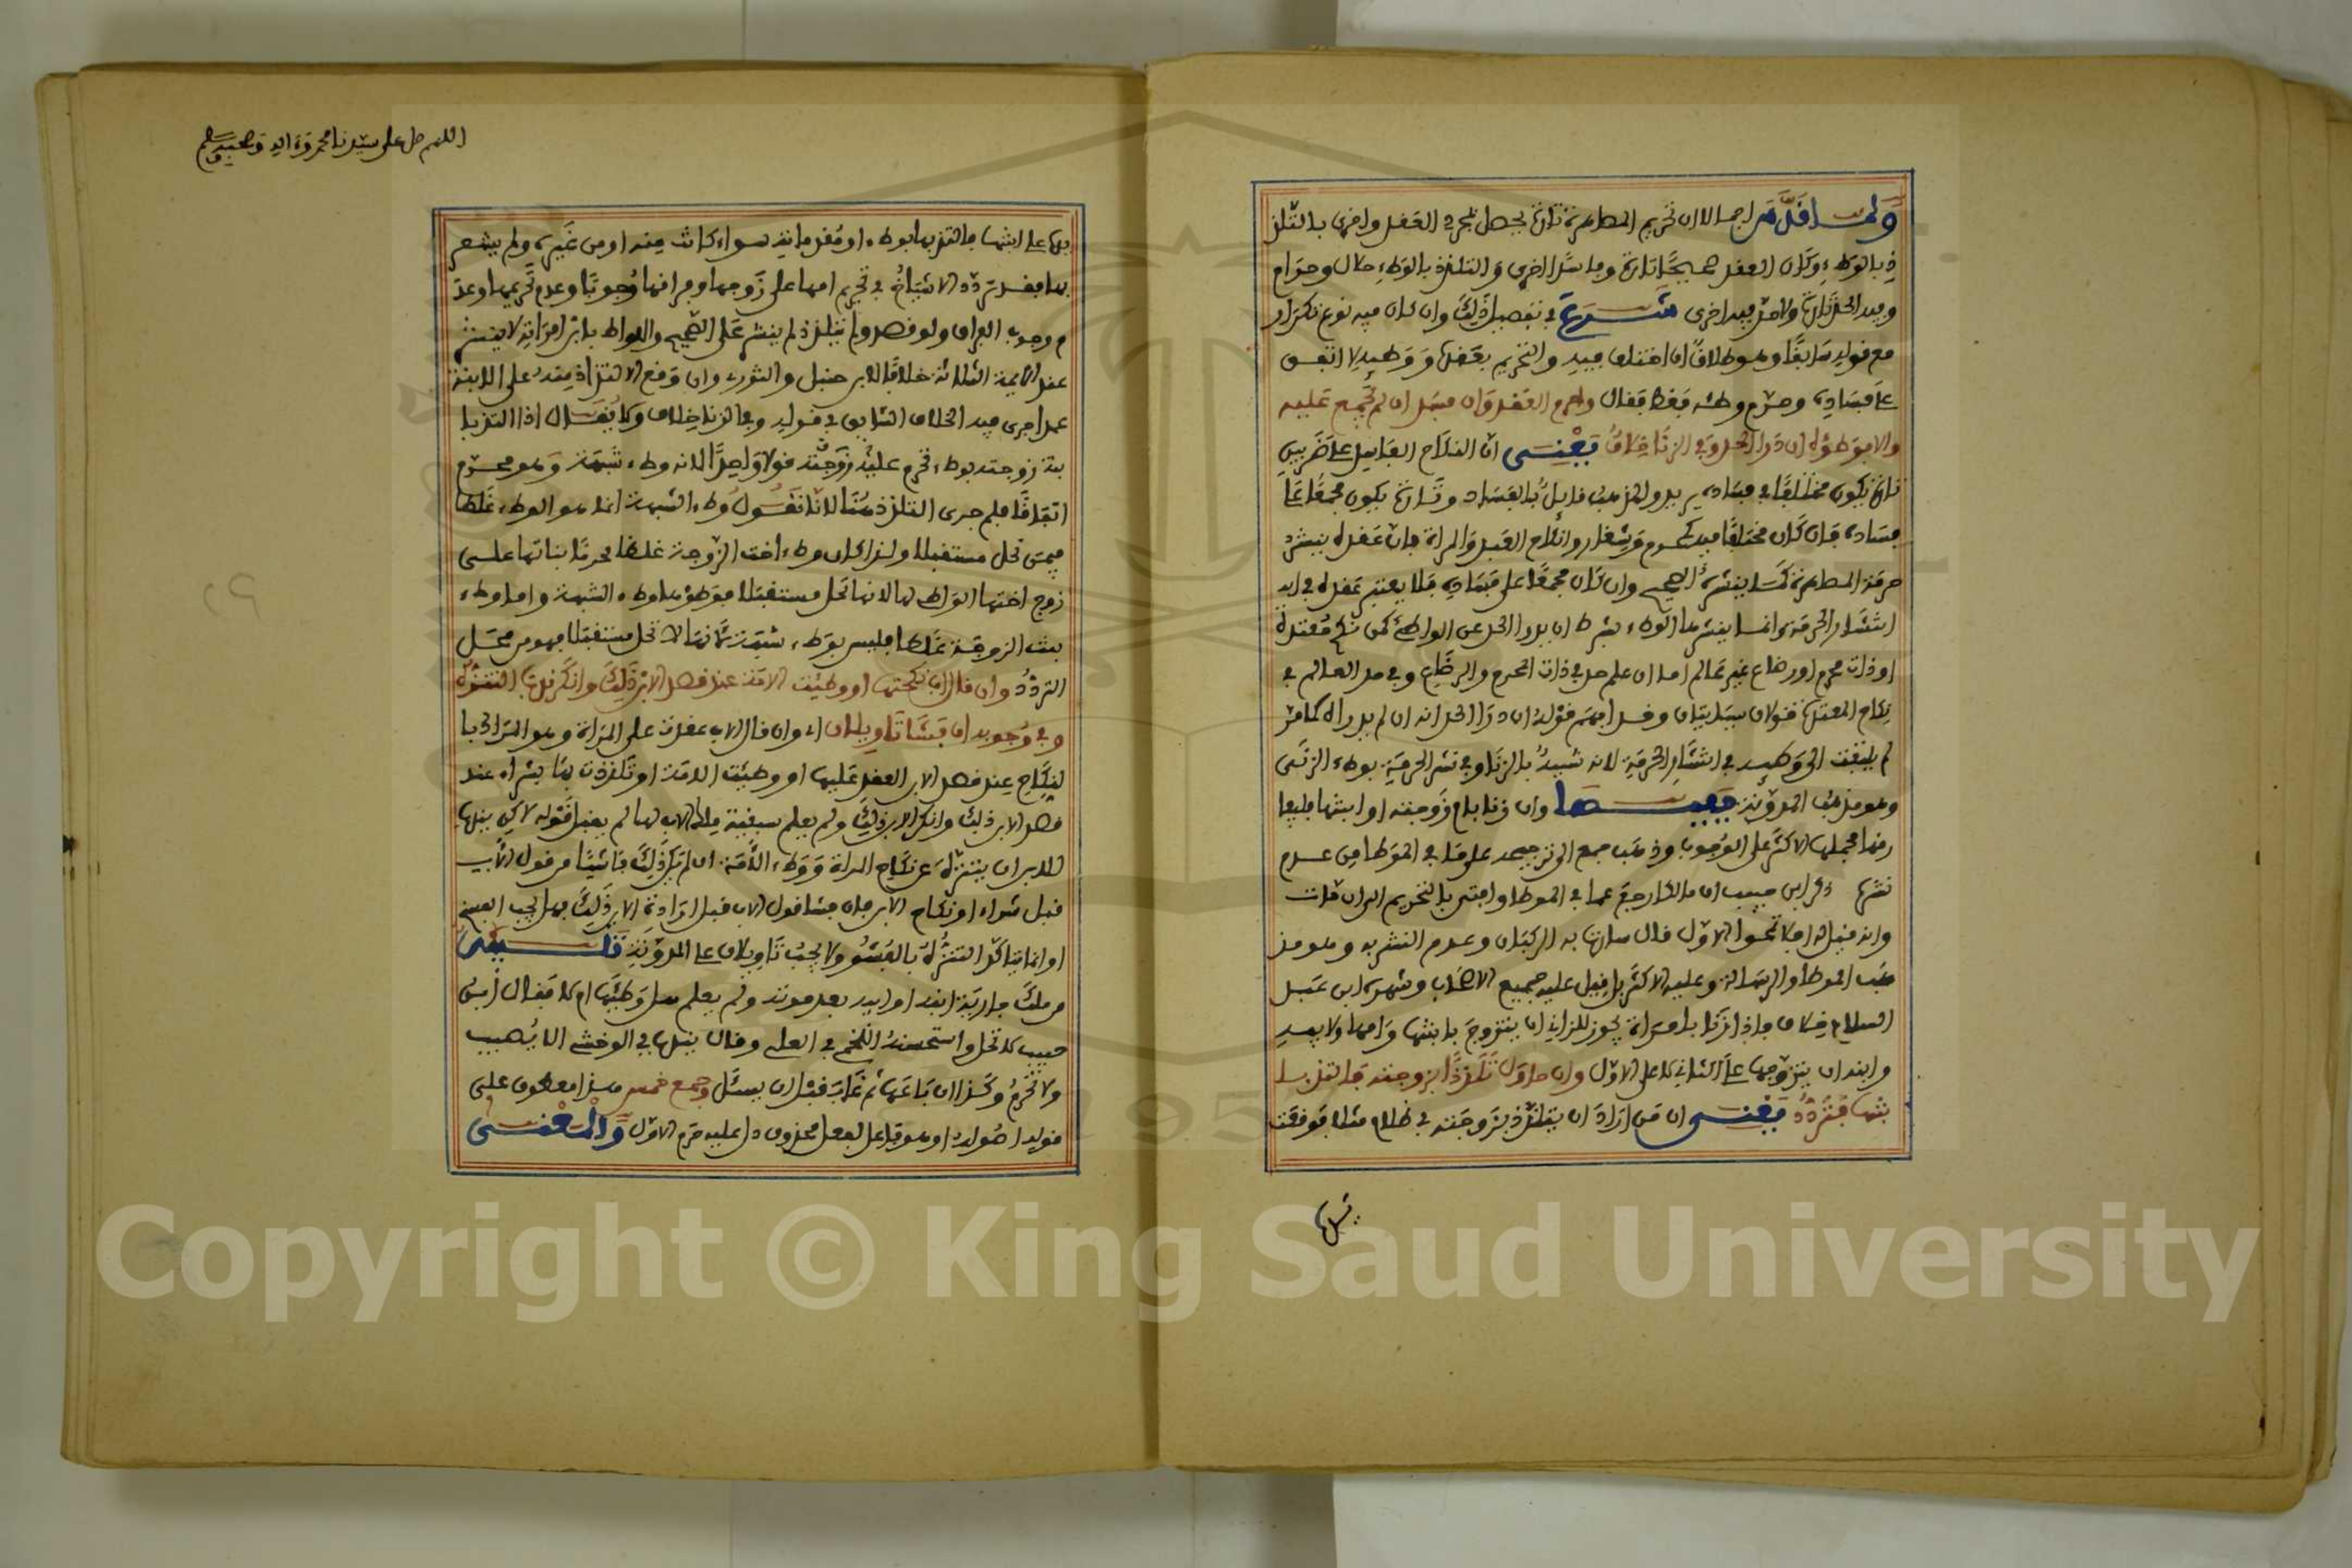 ولما قدم اجمالا ان تحريم المصاهرة تارة يحصل بمجرد العقد واخرى بالتلذ
ذ بالوطء وكان العقد صحيحا تارة وفاسدا اخرى والتلذذ بالوطء حلال وحرام
وفيه الحد تارة ولا حد فيه اخرى شرع في تفصيل ذلك وان كان فيه نوع تكرار
مع قوله سابقا وهو طلاق ان اختلف فيه والتحريم بعقده ووطئه لا اتفق
على فساده وحرم وطئه فقط فقال وحرم العقد وان فسد ان لم يجمع عليه
والا فوطؤه ان درأ الحد وفي الزنا خلاف يعني ان النكاح الفاسد على ضربين
تارة يكون مختلفا في فساده يريد والمذهب قائل بالفساد وتارة يكون مجمعا على
فساده فان كان مختلفا فيه كمحرم وشغار وانكاح العبد والمراة فان عقده ينشر
حرمة المصاهرة كما ينشره الصحيح وان كان مجمعا على فساده فلا يعتبر عقده في
انتشار الحرمة وانما ينشرها الوطء بشرط ان يدرأ الحد عن الواطئ كمن نكح معتدة
او ذات محرم او رضاع غير عالم اما ان علم حد في ذات المحرم والرضاع وفي حد العالم في
نكاح المعتدة قولان سياتيان وقد افهم قوله ان درأ الحد انه ان لم يدراه كما مر
لم يلتفت الى وطئه في انتشار الحرمة لانه شبيه بالزنا وفي نشر الحرمة بوطء الزنى
وهو مذهب المدونة ففيها وان زنا بام زوجته او ابنتها فليفا
رقها فحملها الاكثر على الوجوب وذهب جمع الى ترجيحه على ما في الموطا من عدم
نشرها ذكر ابن حبيب ان مالكا رجع عما في الموطا وافتى بالتحريم الى ان مات
وانه قيل له افلا تمحوا الاول قال سارت به الركبان وعدم النشر به وهو مذ
هب الموطا والرسالة وعليه الاكثر بل قيل عليه جميع الاصحاب وشهره ابن عبد
السلام خلاف فاذا زنا بامراة يجوز للزاني ان يتزوج بابنتها وامها ولابيه
وابنه ان يتزوجها على الثاني لا على الاول وان حاول تلذذا بزوجته فالتذ با
بنتها فتردد يعني ان من اراد ان يتلذذ بزوجته في ظلام مثلا فوقعت
يده
اللهم صل على سيدنا محمد وءاله وصحبه وسلم
يده على ابنتها فالتذ بها بوطء او مقدماته سواء كانت منه او من غيره ولم يشعر
بها فقد تردد الاشياخ في تحريم امها على زوجها وفراقها وجوبا وعدم تحريمها وعد
م وجوب الفراق ولو قصد ولم يتلذذ لم ينشر على الصحيح واللواط بابن امراته لا ينشر
عند الايمة الثلاثة خلافا لابن حنبل والثوري وان وقع الالتذاذ منه على الابنة
عمدا جرى فيه الخلاف السابق في قوله وفي الزنا خلاف ولا يقال اذا التذ با
بنة زوجته بوطء تحرم عليه زوجته قولا واحدا لانه وطء شبهة وهو محرم
اتفاقا فلم جرى التلذذ هنا لانا نقول وطء الشبهة انما هو الوطء غلطا
فيمن تحل مستقبلا ولذا كان وطء اخت الزوجة غلطا محرما بناتها على
زوج اختها الواطئ لها لانها تحل مستقبلا فوطؤها وطء الشبهة واما وطء
بنت الزوجة غلطا فليس بوطء شبهة لانها لا تحل مستقبلا فهو من محل
التردد وان قال اب نكحتها او وطئت الامة عند قصد الابن ذلك وانكر ندب التنزه
وفي وجوبه ان فشا تاويلان اي وان قال الاب عقدت على المراة وهو المراد با
لنكاح عند قصد الابن العقد عليها او وطئت الامة او تلذذت بها بشراء عند
قصد الابن ذلك وانكر الابن ذلك ولم يعلم سبقية ملك الاب لها لم يقبل قوله لكن يندب
للابن ان يتنزه عن نكاح المراة ووطء الامة ان لم يكن ذلك فاشيا من قول الاب
قبل شراء او نكاح الابن فان فشا قول الاب قبل ارادة الابن ذلك فهل يجب الفسخ
او انما يتاكد التنزه بالفشو ولا يجب تاويلان على المدونة تنبيه
من ملك جارية ابنه او ابيه بعد موته ولم يعلم هل وطئها ام لا فقال ابن
حبيب لا تحل واستحسنه اللخمي في العلي وقال يندب في الوخش الا يصيب
ولا تحرم وكذا ان باعها ثم غاب قبل ان يسئل وجمع خمس هذا معطوف على
قوله اصوله او هو فاعل لفعل محذوف دل عليه حرم الاول والمعنى